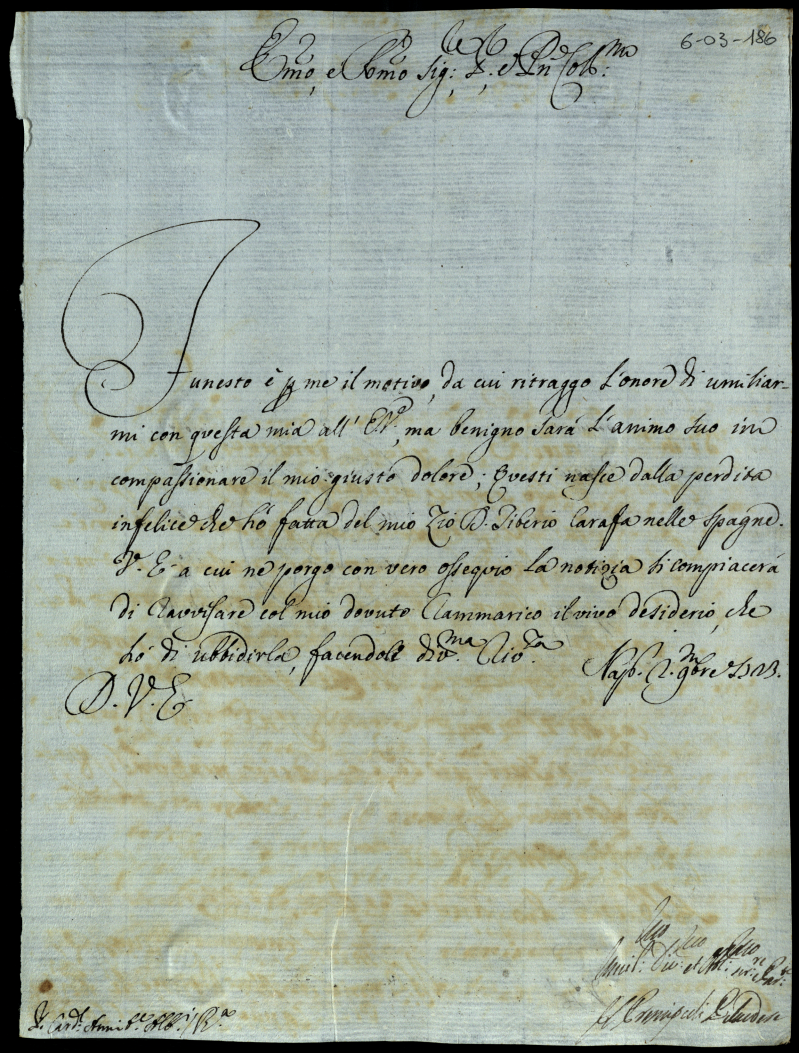 6-03-186
Em̃o, e Rm̃o Sig: P. e Pñe Col:mo
Funesto è p me il motivo, da cui ritraggo l'onore di umiliar-
mi con questa mia all' E.V., ma benigno sarà l'animo suo in
compassionare il mio giusto dolore; Questi nasce dalla perdita
infelice che hó fatta del mio Zio D. Tiberio Carafa nelle Spagne.
V. E. a cui ne porgo con vero ossequio la notizia si compiacerà
di ravvisare col mio dovuto rammarico il vivo desiderio, che
hó di ubbidirla, facendole div.ma riv.za
D. V. E. Nap.
Card.